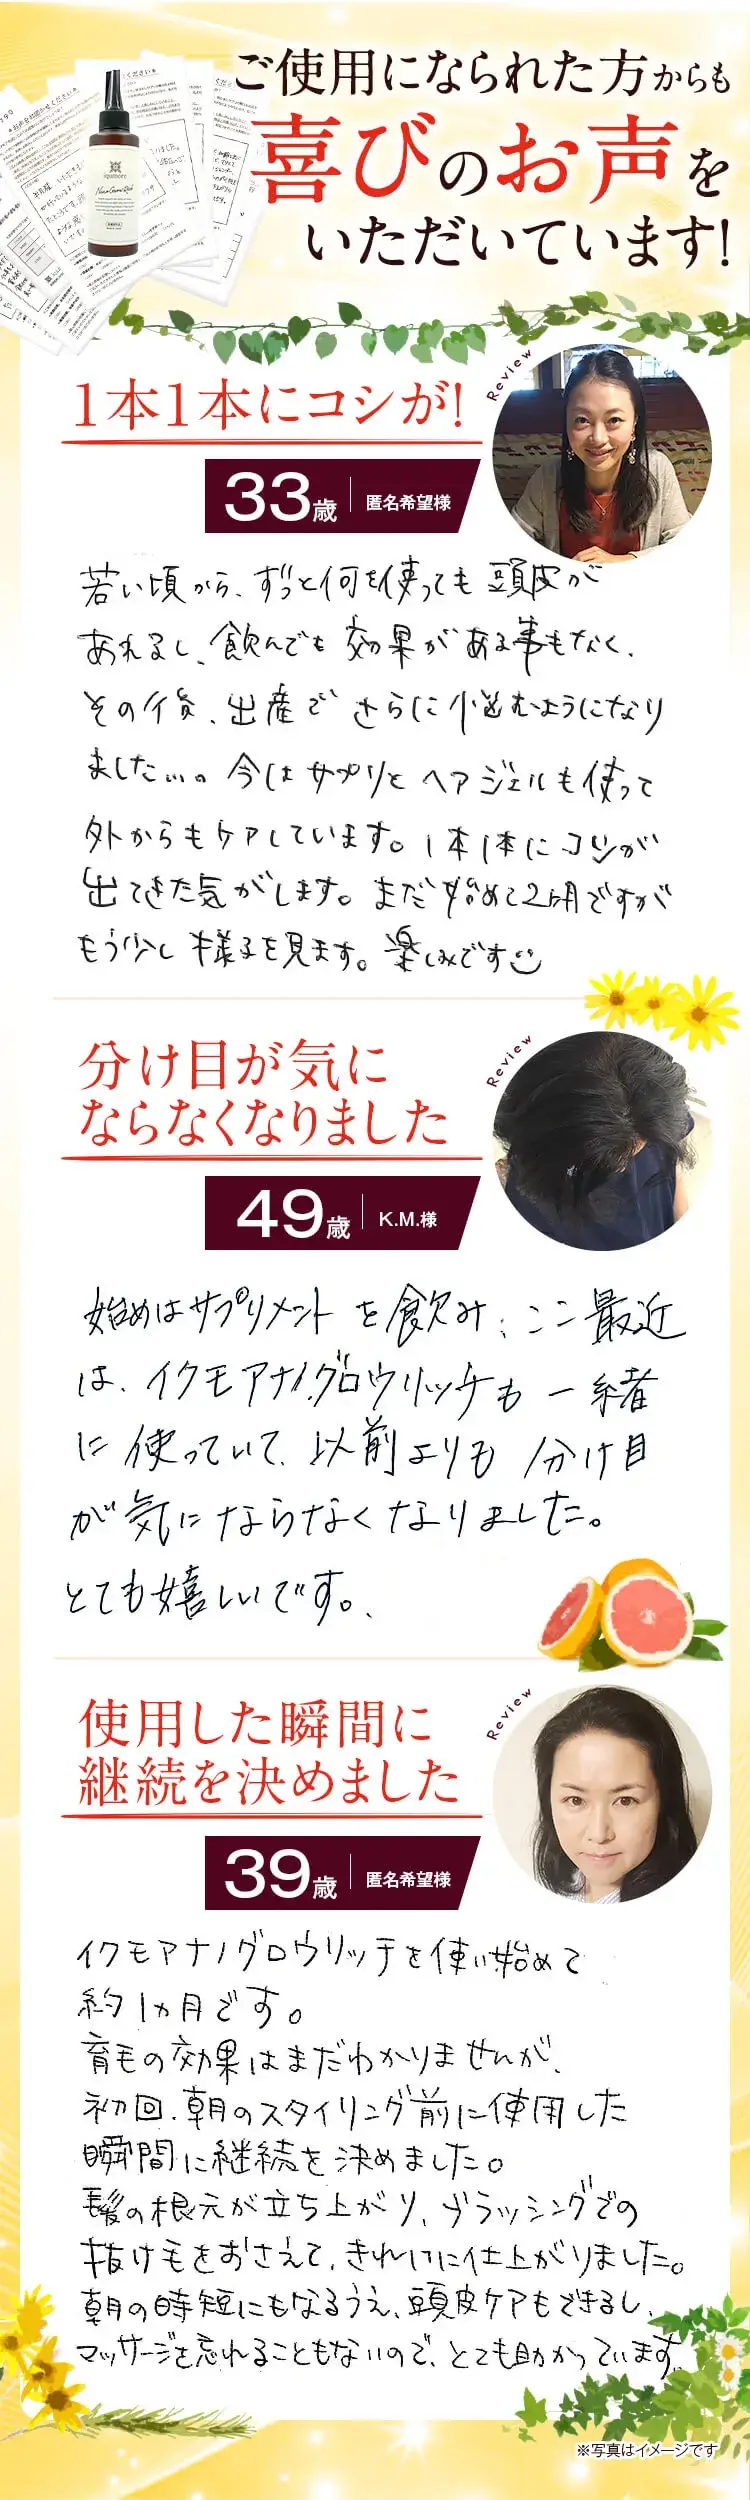 ご使用になられた方からも
喜びのお声を
いただいています!
Review
1本1本にコシが!
33歳 匿名希望様
若い頃から、ずっと何を使っても頭皮が
あれるし、飲んでも効果がある事もなく、
その後、出産でさらに悩むようになり
ました…。今はサプリとヘアジェルも使って
外からもケアしています。1本1本にコシが
出てきた気がします。まだ始めて2ヶ月ですが
もう少し様子を見ます。楽しみです
Review
分け目が気に
ならなくなりました
49歳 K.M.様
始めはサプリメントを飲み、ここ最近
は、イクモアナノグロウリッチも一緒
に使っていて、以前よりも分け目
が気にならなくなりました。
とても嬉しいです。
Review
使用した瞬間に
継続を決めました
39歳 匿名希望様
イクモアナノグロウリッチを使い始めて
約1ヵ月です。
育毛の効果はまだわかりませんが、
初回、朝のスタイリング前に使用した
瞬間に継続を決めました。
髪の根元が立ち上がり、ブラッシングでの
抜け毛をおさえて、きれいに仕上がりました。
朝の時短にもなるうえ、頭皮ケアもできるし、
マッサージを忘れることもないので、とても助かっています。
※写真はイメージです